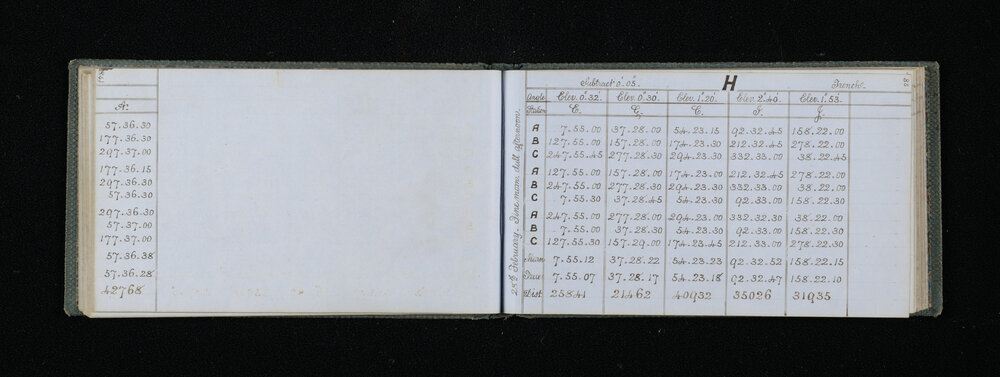 A.
57.36.30
177.36.30
297.37.00
177.36.15
297.36.30
57.36.30
297.36.30
57.37.00
177.37.00
57.36.38
57.36.28
42768
28th February. Fine morn: dull afternoon.
Subtract 0.05. H French.
Angle Elev. 0.32. Elev. 0.30. Elev. 1.20. Elev. 2.40. Elev. 1.53.
Station
A 7.55.00 37.28.00 54.23.15 92.32.45 158.22.00
B 127.55.00 157.28.00 174.23.30 212.32.45 278.22.00
C 247.55.45 277.28.30 294.23.30 332.33.00 38.22.45
A 127.55.00 157.28.00 174.23.00 212.32.45 278.22.00
B 247.55.00 277.28.30 294.23.30 332.33.00 38.22.00
C 7.55.30 37.28.45 54.23.30 92.33.00 158.22.30
A 247.55.00 277.28.00 294.23.00 332.32.30 38.22.00
B 7.55.00 37.28.30 54.23.30 92.33.00 158.22.30
C 127.55.30 157.29.00 174.23.45 212.33.00 278.22.30
Mean 7.55.12 37.28.22 54.23.23 92.32.52 158.22.15
True 7.55.07 37.28.17 54.23.18 92.32.47 158.22.10
Dist. 25841 21462 40932 35026 31935